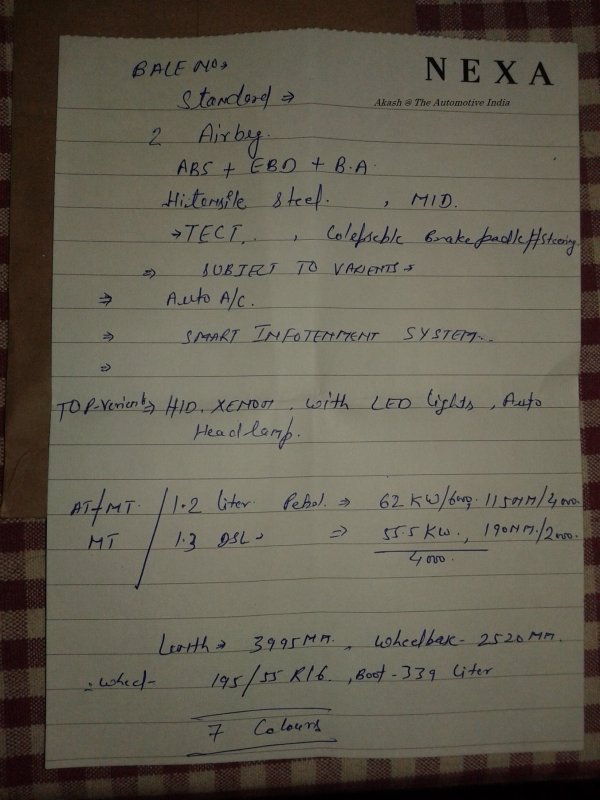 NEXA
Akash @ The Automotive India
BALENO→
Standerd ⇒
2 Airbeg.
ABS + EBD + B.A.
Hitensile steel. , MID.
→TECT. , Colepseble Brake paddle//Steering
⇒ SUBJECT TO VARIENTS
⇒ Auto A/c.
⇒ SMART INFOTENMENT SYSTEM..
⇒
TOP-verient ⇒ HID. XENON. with LED lights, Auto
Headlamp.
AT/MT / 1.2 liter. Petrol. ⇒ 62 KW/6000. 115NM/4000.
MT / 1.3 DSL ⇒ 55.5 KW., 190NM./2000.
4000.
Lenth → 3995MM. , Wheelbase - 2520MM.
:wheel- 195/55 R16. , Boot - 339 liter
7 Colours